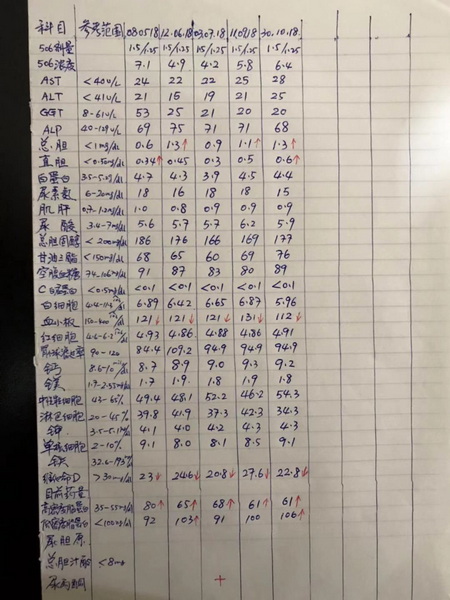 科目 参考范围 08.05.18 12.06.18 03.07.18 11.09.18 30.10.18
506剂量 1.5/1.25 1.5/1.25 1.5/1.25 1.5/1.25 1.5/1.25
506浓度 7.1 4.9 4.2 5.8 6.4
AST <40u/L 24 22 22 25 28
ALT <41u/L 21 15 19 21 25
GGT 8-61u/L 53 25 21 20 20
ALP 40-129u/L 69 75 71 71 68
总胆 <1mg/dl 0.6 1.3↑ 0.9 1.1↑ 1.3↑
直胆 <0.3mg/dl 0.34↑ 0.45 0.3 0.5 0.6↑
白蛋白 4.7 4.3 3.9 4.5 4.4
尿素氮 18 16 18 18 15
肌肝 0.7-1.2mg/dl 1.0 0.8 0.9 0.9 0.9
尿酸 3.4-7mg/dl 5.6 5.7 5.7 6.2 5.9
总胆固醇 <200mg/dl 186 176 166 169 177
甘油三酯 <150mg/dl 68 65 60 69 76
空腹血糖 74-106mg/dl 91 87 83 80 89
C白蛋白 <0.5mg/dl <0.1 <0.1 <0.1 <0.1 <0.1
白细胞 6.89 6.42 6.65 6.87 5.96
血小板 121↓ 121↓ 121↓ 131↓ 112↓
红细胞 4.93 4.86 4.88 4.86 4.91
90-120 84.4 109.2 94.9 94.9 94.9
钙 8.7 8.9 9.0 9.3 9.2
镁 1.7 1.9 1.8 1.9 1.8
中性细胞 43-65% 49.4 48.1 52.2 46.2 54.3
淋巴细胞 20-45% 39.8 41.9 37.3 42.3 34.3
钾 4.1 4.0 4.2 4.3 4.3
单核细胞 2-10% 9.1 8.0 8.1 8.5 9.1
铁
维他命D >30mg/dl 23↓ 24.6↓ 20.8↓ 27.6↓ 22.8↓
目前药量
高密度脂蛋白 35-55mg/dl 80↑ 65↑ 68↑ 61↑ 61↑
低密度脂蛋白 <100mg/dl 92 103↑ 91 100 106↑
尿胆原
总胆汁酸
尿 +